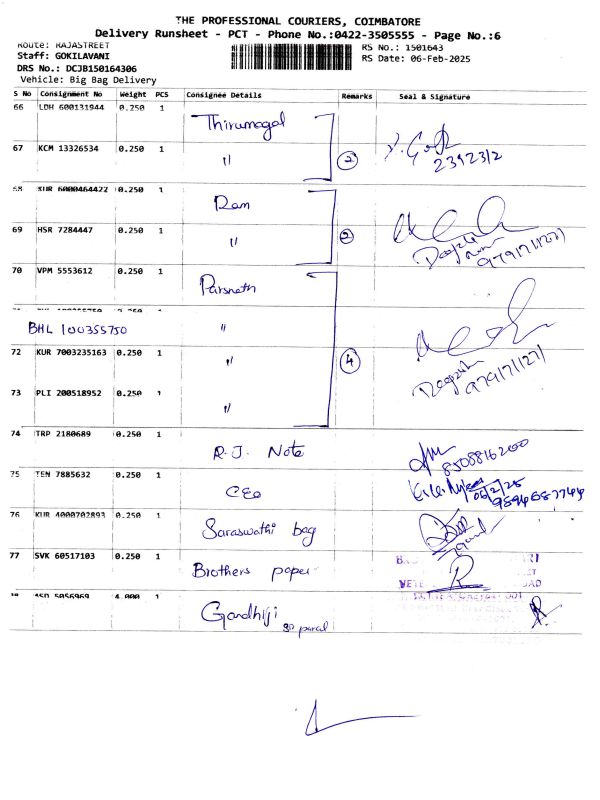 THE PROFESSIONAL COURIERS, COIMBATORE
Delivery Runsheet - PCT - Phone No.:0422-3505555 - Page No.:6
Route: RAJASTREET
RS No.: 1501643
Staff: GOKILAVANI
RS Date: 06-Feb-2025
DRS No.: DCJB150164306
Vehicle: Big Bag Delivery
S No Consignment No Weight PCS Consignee Details Remarks Seal & Signature
66 LDH 600131944 0.250 1 Thirumagal
67 KCM 13326534 0.250 1 〃 2
23923/2
68 KUR 6000464422 0.250 1 Ram
69 HSR 7284447 0.250 1 〃 2
9791711271
70 VPM 5553612 0.250 1 Parsnath
BHL 100355750 〃
72 KUR 7003235163 0.250 1 〃 4
Deepak
9791711271
73 PLI 200518952 0.250 1 〃
74 TRP 2180689 0.250 1 R.J. Note
8508816200
75 TEN 7885632 0.250 1 CEO
06/2/25
76 KUR 4000702893 0.250 1 Saraswathi bag
77 SVK 60517103 0.250 1 Brothers paper
5056969 4.000 1 Gandhiji